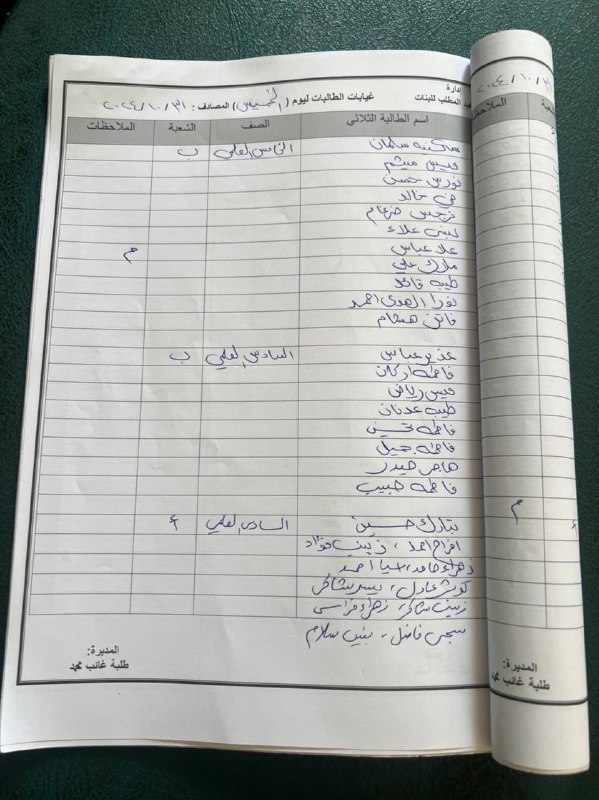 إدارة
عبد المطلب للبنات
غيابات الطالبات ليوم (الخميس) المصادف: ٣١/١٠/٢٠٢٤
اسم الطالبة الثلاثي الصف الشعبة الملاحظات
سكينه سلمان الخامس العلمي ب
ميس ميثم
نورس حسن
مي خالد
نرجس ضرغام
لبنى علاء
علا عباس م
ملاك علي
طيبه قائد
نورا الهدى احمد
فاتن هشام
غدير عباس السادس العلمي ب
فاطمه اركان
ميس رياض
طيبه عدنان
فاطمه تحسين
فاطمه جميل
هاجر حيدر
فاطمه حبيب
تبارك حسين السادس العلمي أ
افراح احمد، زينب فؤاد
زهراء حامد، احمد
كوثر عادل، يسر
زينب شاكر، زهراء فراس
سجى فاضل، بنين سلام
المديرة:
طلبة غائب محمد
٣١/١٠/٢٠٢٤
الملاحظ
شعبة
م
أ
المديرة:
طلبة غائب محمد